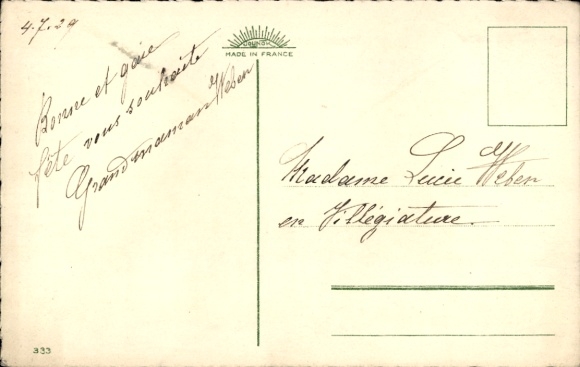 4.7.29
MADE IN FRANCE
Bonne et gaie
fête vous souhaite
Grand'maman Weber
Madame Lucie Weber
en Villégiature.
333